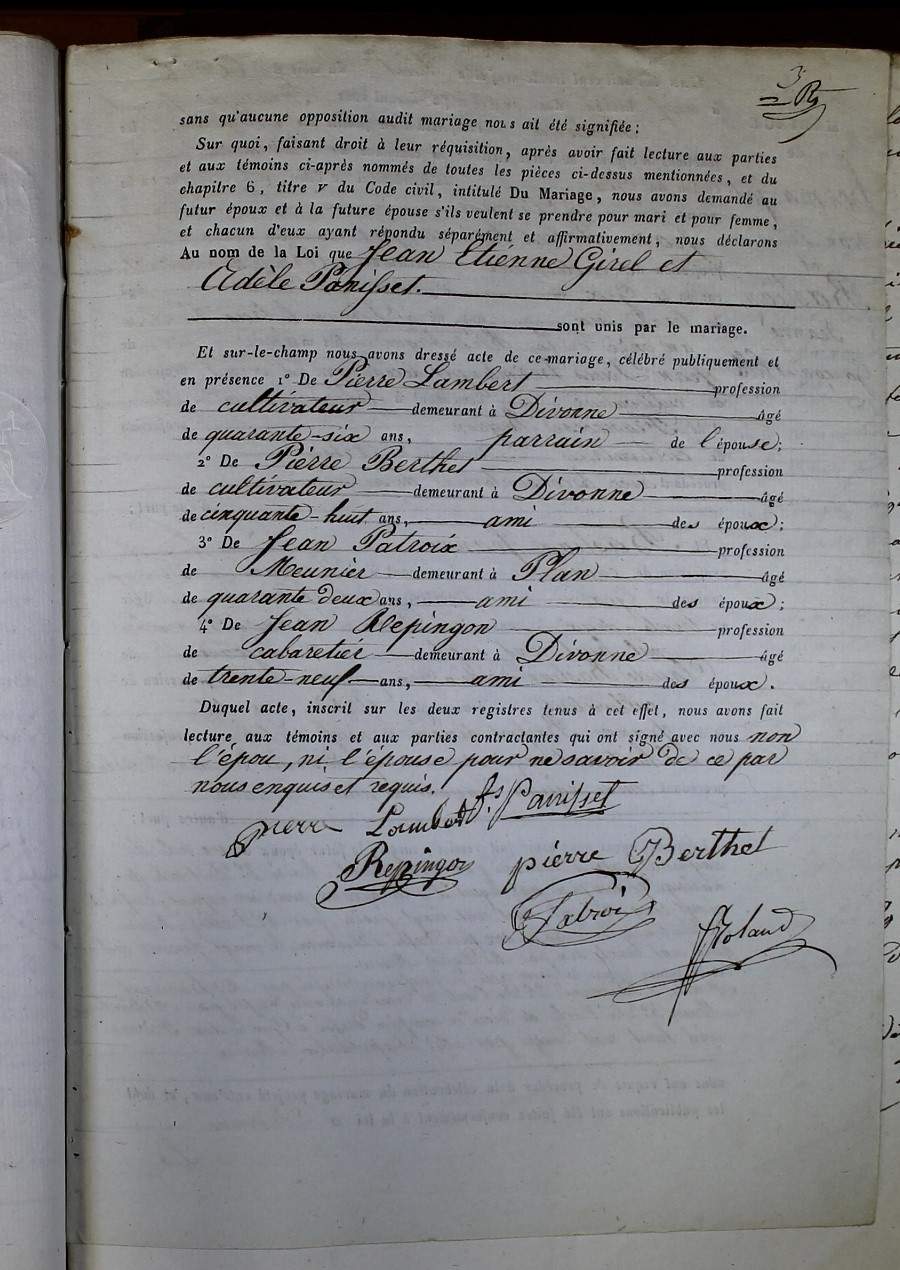 3
sans qu'aucune opposition audit mariage nous ait été signifiée ;
Sur quoi, faisant droit à leur réquisition, après avoir fait lecture aux parties
et aux témoins ci-après nommés de toutes les pièces ci-dessus mentionnées, et du
chapitre 6, titre v du Code civil, intitulé Du Mariage, nous avons demandé au
futur époux et à la future épouse s'ils veulent se prendre pour mari et pour femme,
et chacun d'eux ayant répondu séparément et affirmativement, nous déclarons
Au nom de la Loi que Jean Etienne Girel et
Adèle Panisset.
sont unis par le mariage.
Et sur-le-champ nous avons dressé acte de ce mariage, célébré publiquement et
en présence 1º De Pierre Lambert profession
de cultivateur demeurant à Divonne âgé
de quarante-six ans, parrain de l'épouse ;
2º De Pierre Berthet profession
de cultivateur demeurant à Divonne âgé
de cinquante-huit ans, ami des époux ;
3º De Jean Patroix profession
de Meunier demeurant à Plan âgé
de quarante deux ans, ami des époux ;
4º De Jean Repingon profession
de cabaretier demeurant à Divonne âgé
de trente-neuf ans, ami des époux.
Duquel acte, inscrit sur les deux registres tenus à cet effet, nous avons fait
lecture aux témoins et aux parties contractantes qui ont signé avec nous non
l'épou, ni l'épouse pour ne savoir de ce par
nous enquis et requis.
pierre Lambert fs Panisset
Repingon pierre Berthet
Roland